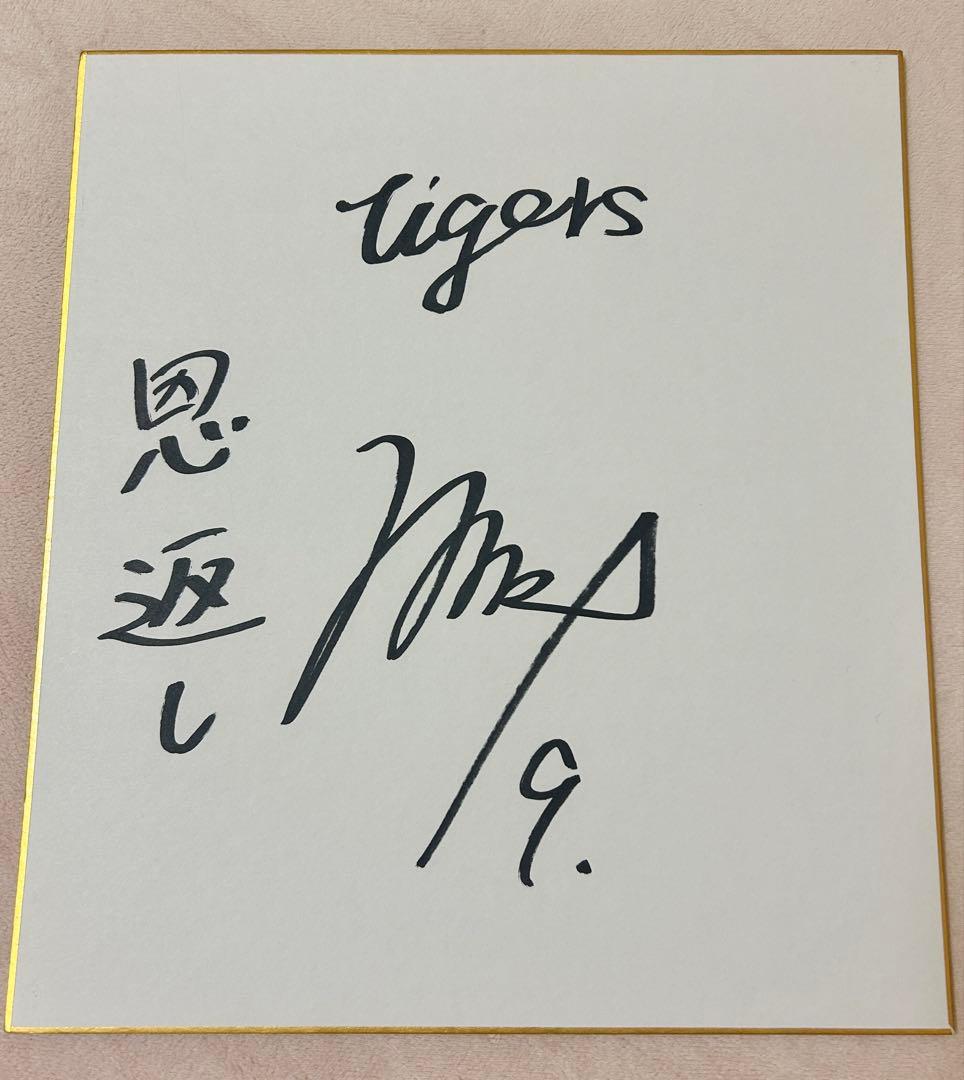 tigers
恩返し
9.